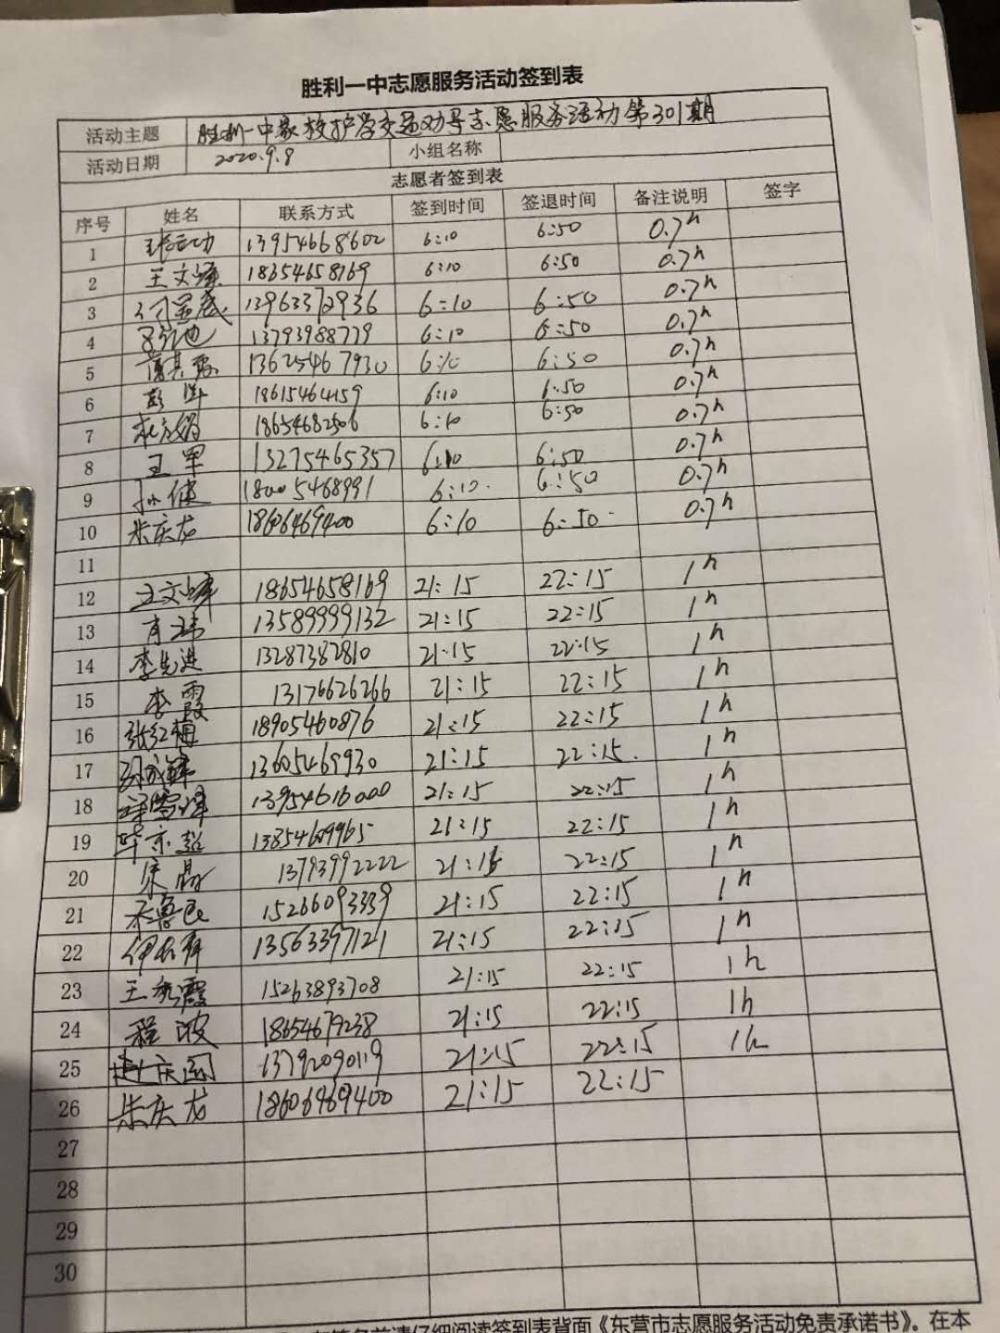 胜利一中志愿服务活动签到表
活动主题 胜利一中家校护学交通劝导志愿服务活动第301期
活动日期 2020.9.8 小组名称
志愿者签到表
序号 姓名 联系方式 签到时间 签退时间 备注说明 签字
1 13954668602 6:10 6:50 0.7h
2 王文峰 18654658169 6:10 6:50 0.7h
3 13963372936 6:10 6:50 0.7h
4 13793988779 6:10 6:50 0.7h
5 13625467930 6:10 6:50 0.7h
6 彭 18615464159 6:10 6:50 0.7h
7 杜方娟 18654682506 6:10 6:50 0.7h
8 王军 13275465357 6:10 6:50 0.7h
9 孙健 18005468991 6:10. 6:50 0.7h
10 朱庆龙 18606469400 6:10 6:50. 0.7h
11
12 王文峰 18654658169 21:15 22:15 1h
13 肖玮 13589999132 21:15 22:15 1h
14 李先进 13287382810 21:15 22:15 1h
15 李霞 13176626266 21:15 22:15 1h
16 张红梅 18905460876 21:15 22:15 1h
17 13605469930 21:15 22:15. 1h
18 13954616000 21:15 22:15 1h
19 毕京超 13854609965 21:15 22:15 1h
20 宋晶 13793992222 21:15 22:15 1h
21 乔鲁民 15266093339 21:15 22:15 1h
22 伊 13563397121 21:15 22:15 1h
23 王秀霞 15263893708 21:15 22:15 1h
24 程波 18654679238 21:15 22:15 1h
25 赵庆国 13792090119 21:15 22:15 1h
26 朱庆龙 18606469400 21:15 22:15
27
28
29
30
签名前请仔细阅读签到表背面《东营市志愿服务活动免责承诺书》。在本